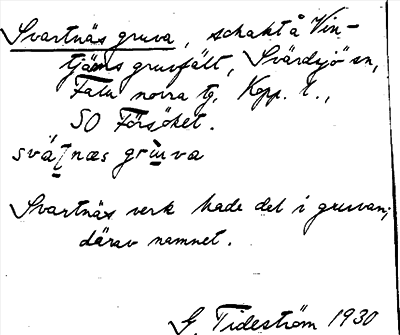 Svartnäs gruva, schakt å Vin-
tjärns gruvfält, Svärdsjö sn,
Falu norra tg, Kopp. l.,
SO Försöket.
svät̯næs grùva
Svartnäs verk hade del i gruvan;
därav namnet.
G. Tideström 1930